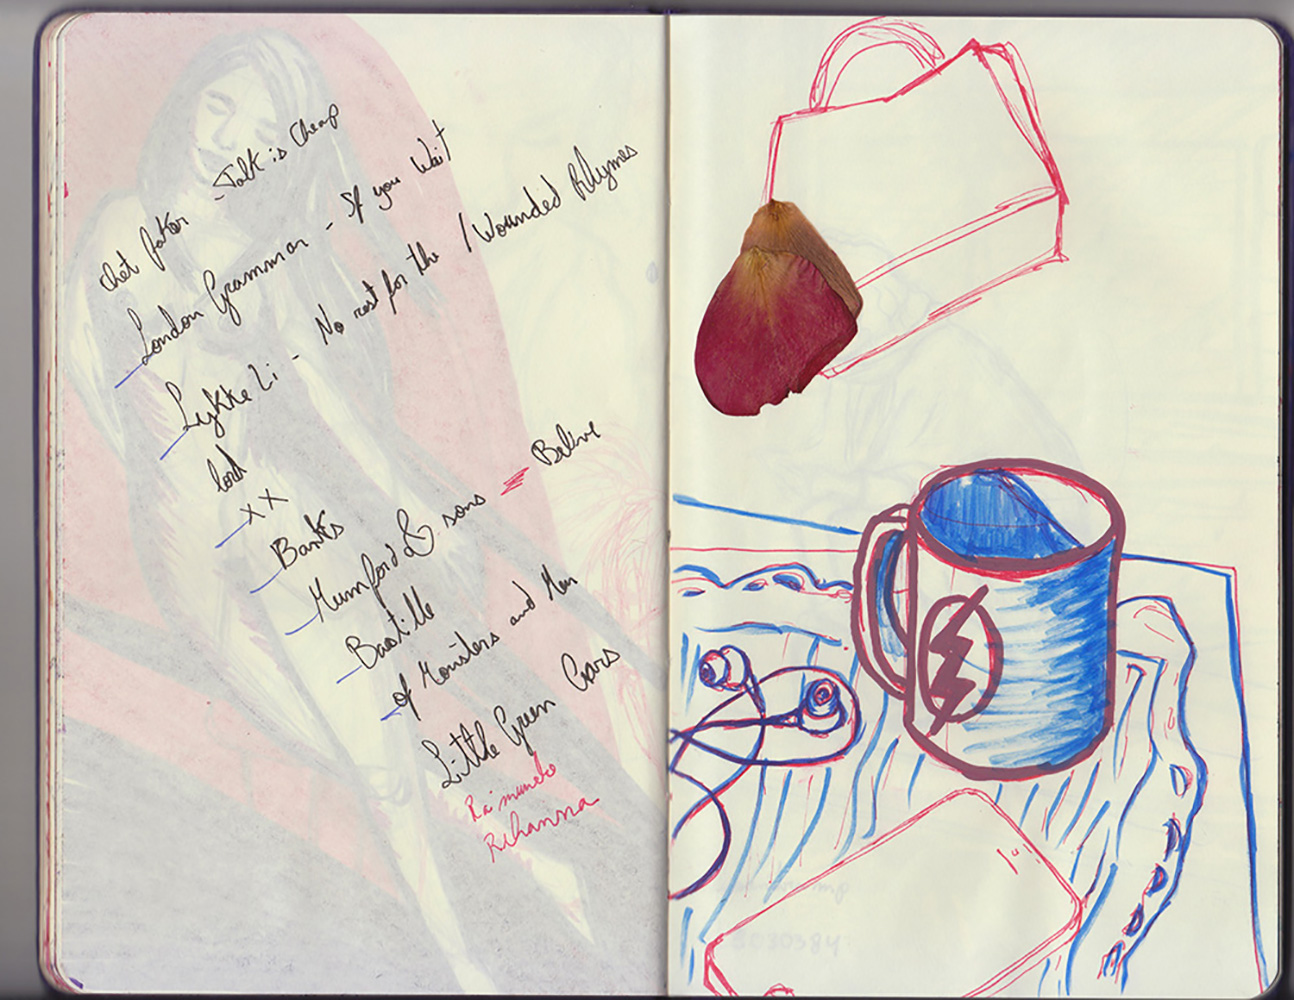 chet faker - Talk is Cheap
London Grammar - If you Wait
Lykke Li - No rest for the / Wounded Rhymes
lord
xx
Banks
Mumford & sons = Belive
Bastille
of Monsters and Men
Little Green Cars
Raimundo
Rihanna
5030384